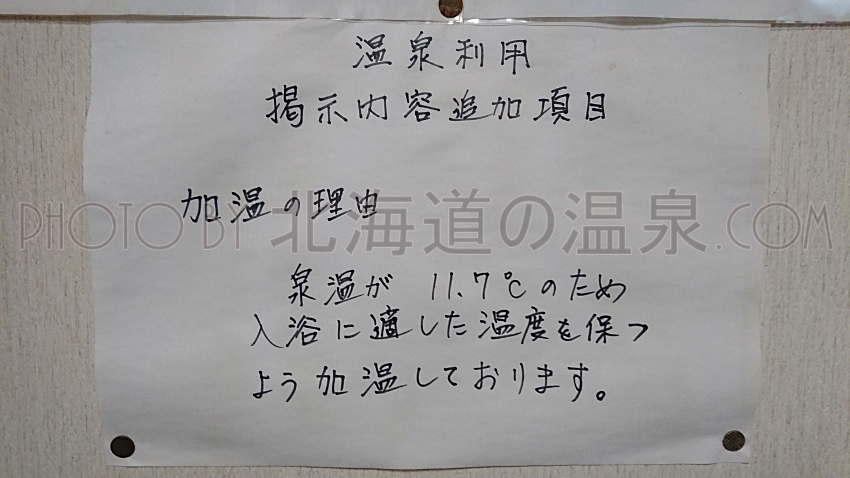 温泉利用
掲示内容追加項目
加温の理由
PHOTO BY 北海道の温泉.COM
泉温が 11.7℃のため
入浴に適した温度を保つ
よう加温しております。